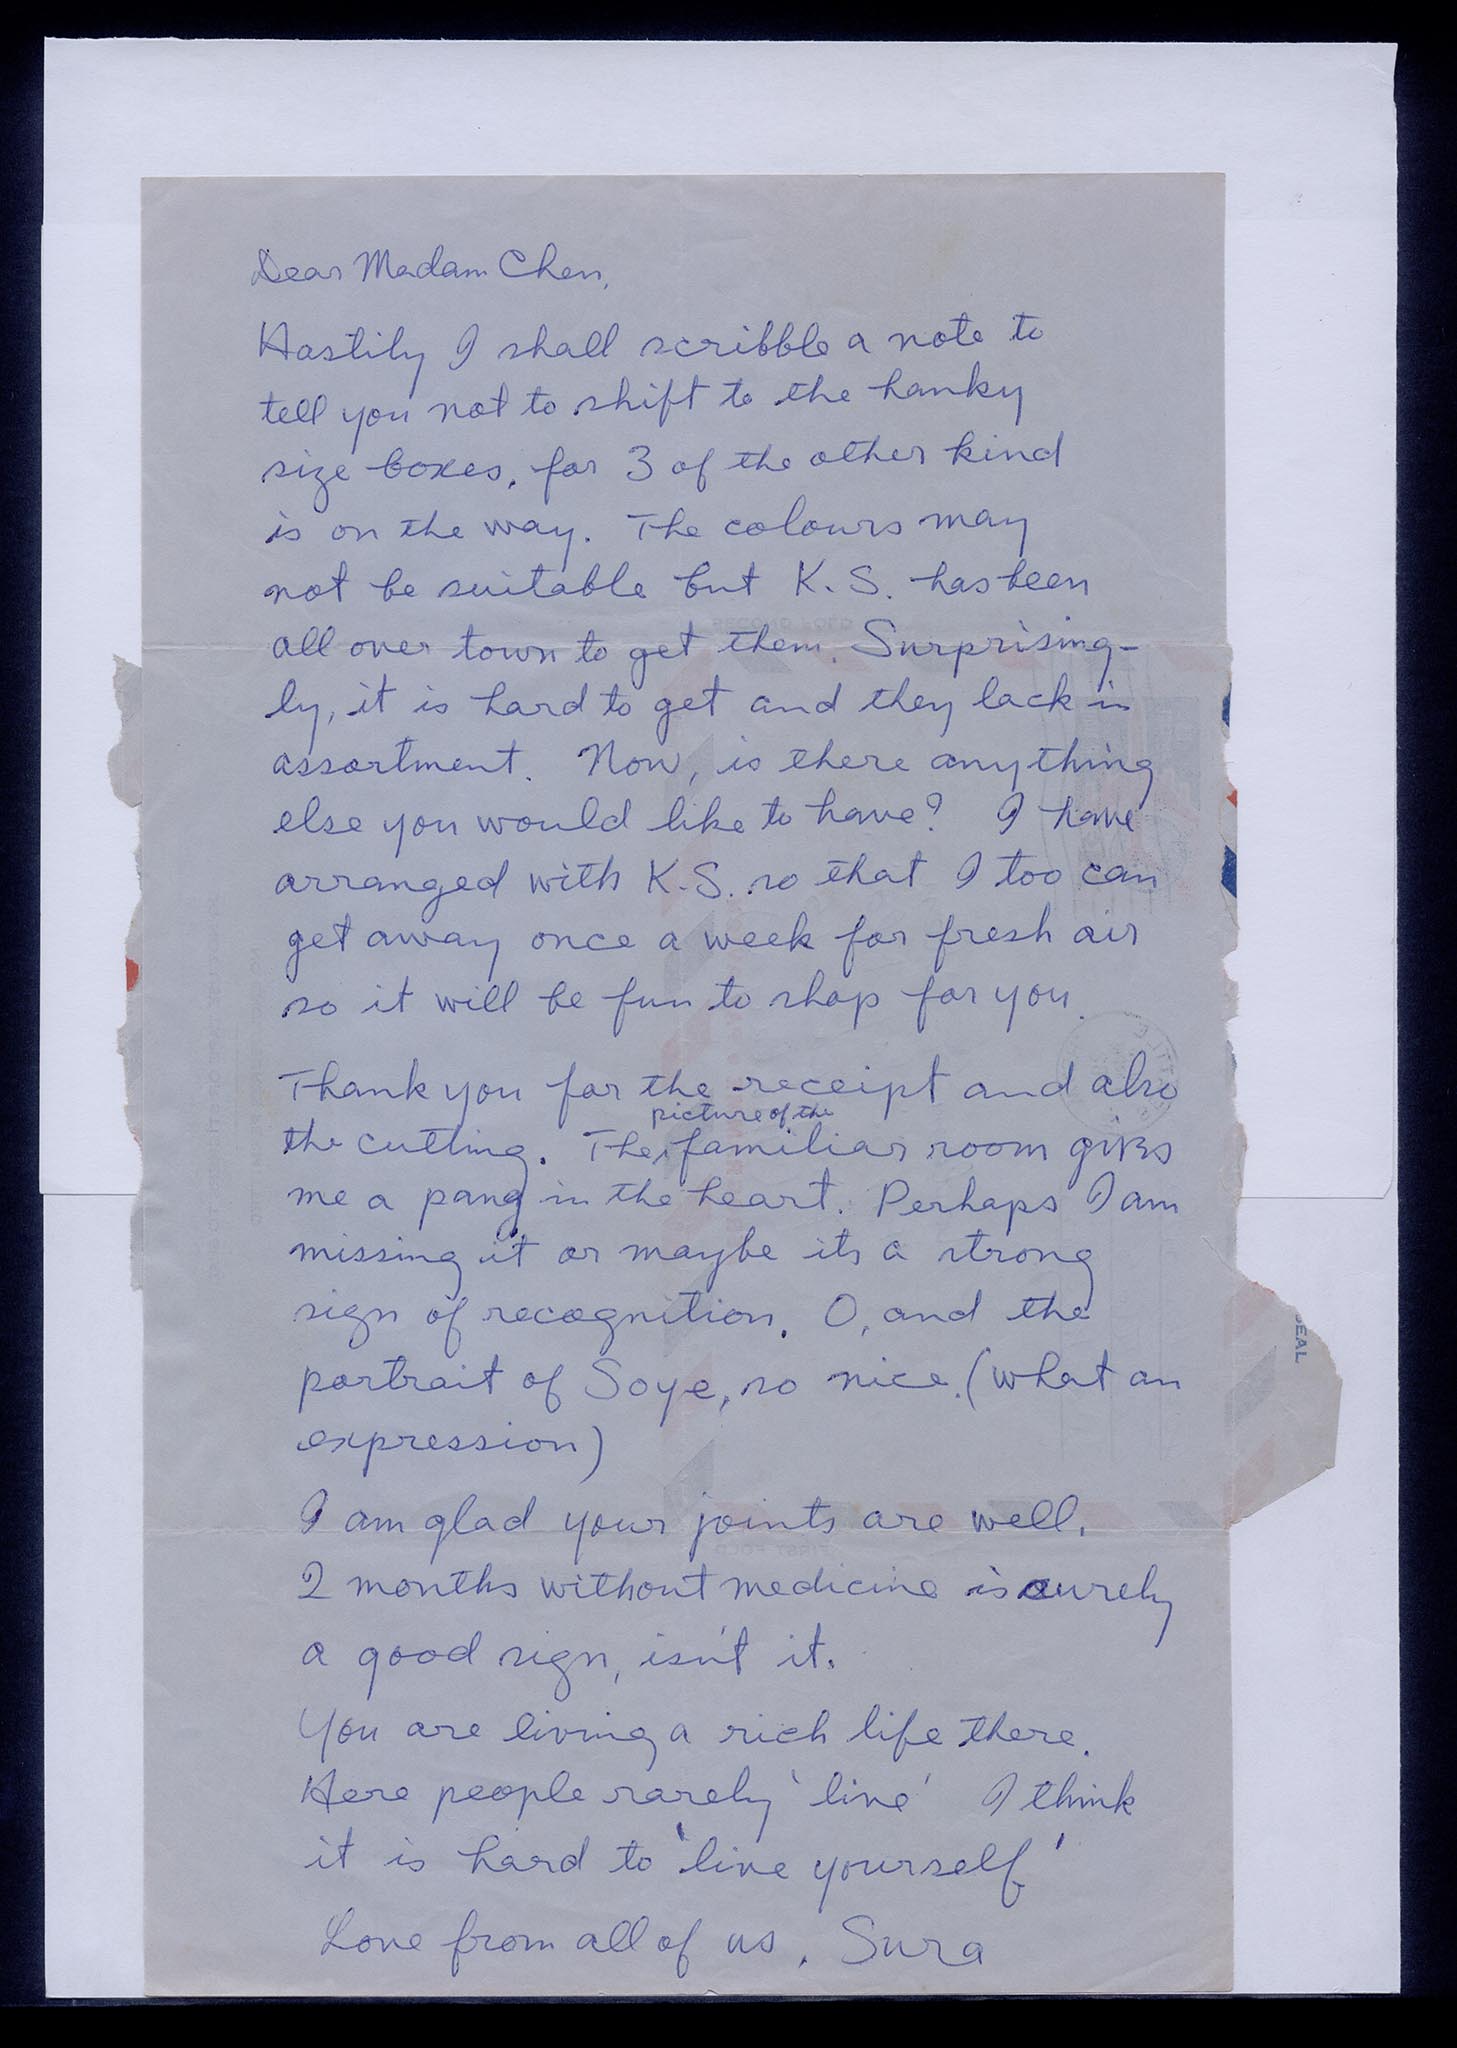 Dear Madam Chen,
Hastily I shall scribble a note to
tell you not to shift to the hanky
size boxes, for 3 of the other kind
is on the way. The colours may
not be suitable but K.S. has been
all over town to get them. Surprising-
ly, it is hard to get and they lack in
assortment. Now, is there anything
else you would like to have? I have
arranged with K.S. so that I too can
get away once a week for fresh air
so it will be fun to shop for you.
Thank you for the receipt and also
picture of the
the cutting. The familiar room gives
me a pang in the heart. Perhaps I am
missing it or maybe its a strong
sign of recognition. O, and the
portrait of Soye, so nice. (what an
expression)
I am glad your joints are well.
2 months without medicine is surely
a good sign, isn't it.
You are living a rich life there.
Here people rarely 'live' I think
it is hard to 'live yourself'
Love from all of us. Sura
SEAL
SECOND FOLD
FIRST FOLD